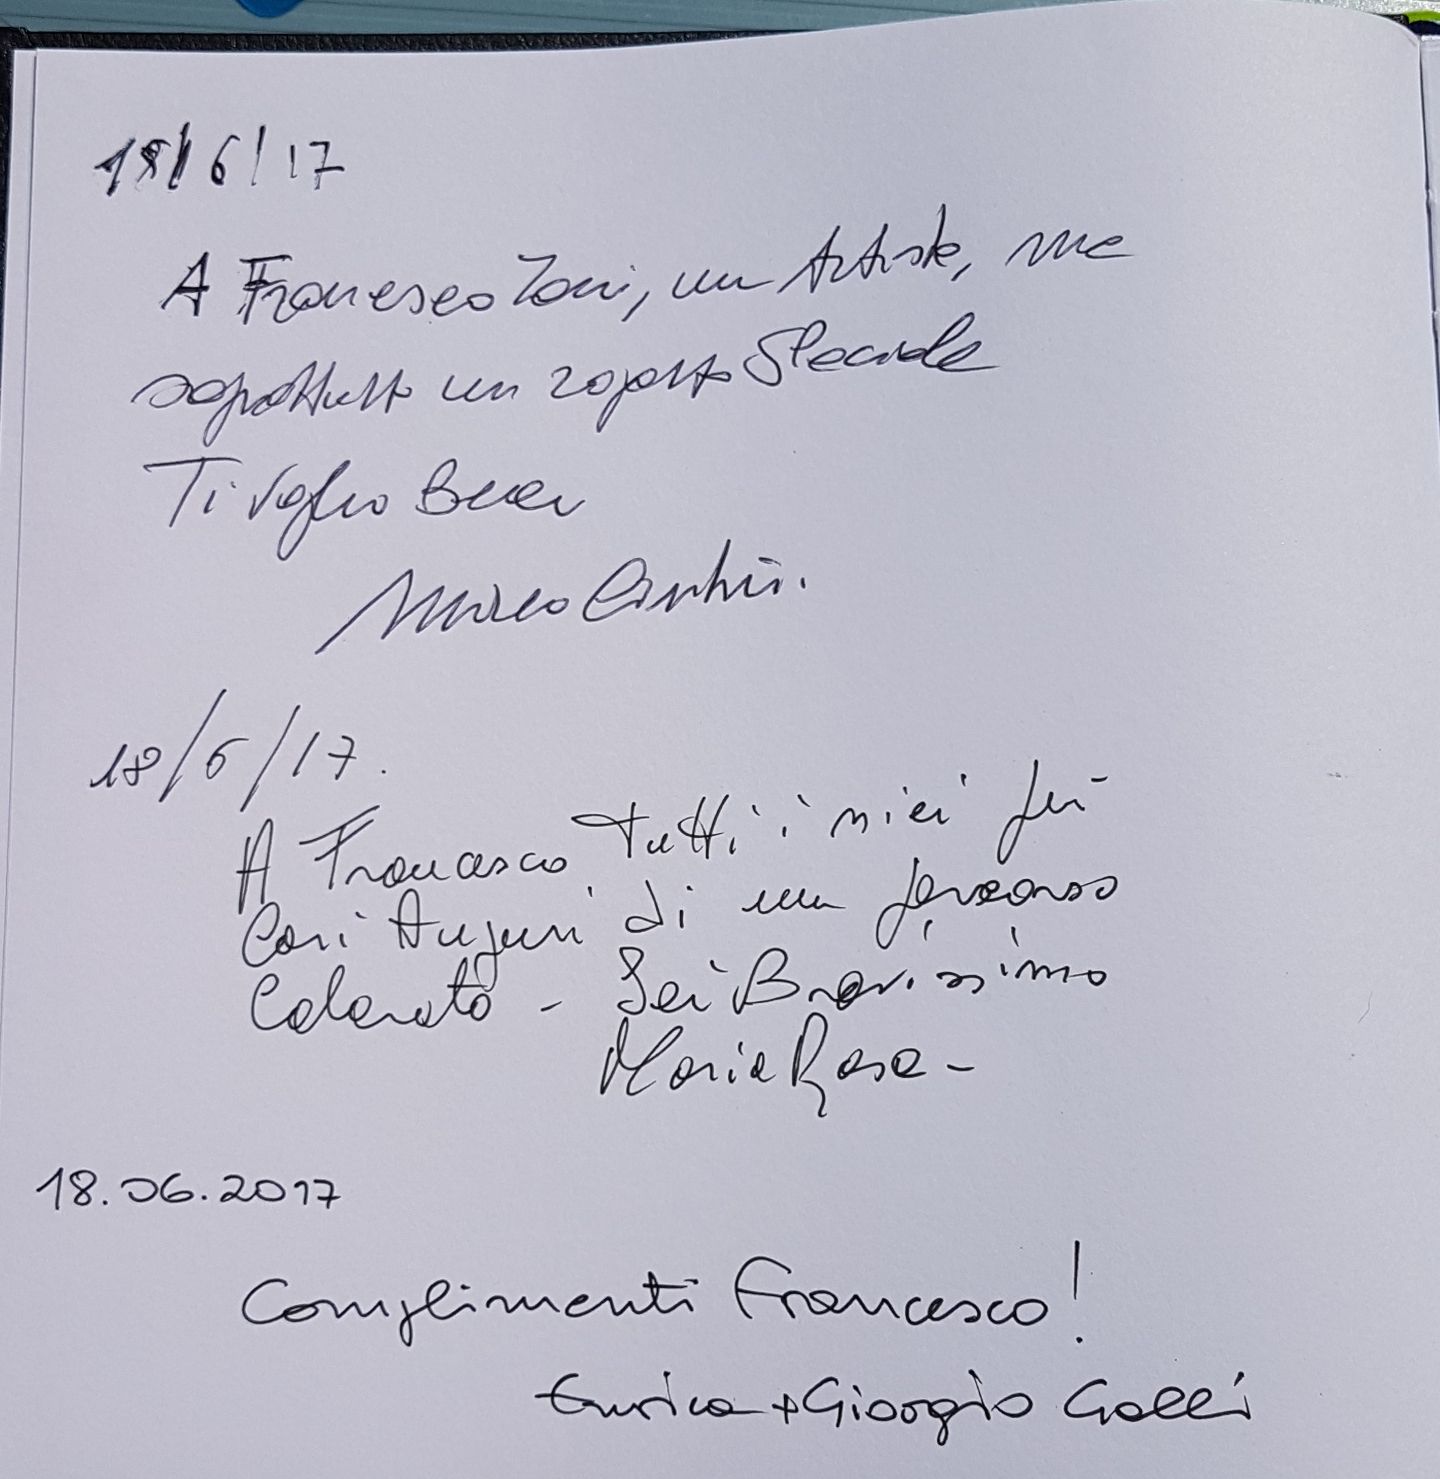 18/6/17
A Francesco Zoni, un Artista, ma
soprattutto un ragazzo Speciale
Ti Voglio Bene
Marco
18/6/17.
A Francesco Tutti i miei più
Cari Auguri di un percorso
Colorato - Sei Bravissimo
Maria Rosa -
18.06.2017
Complimenti Francesco!
Enrica + Giorgio Galli